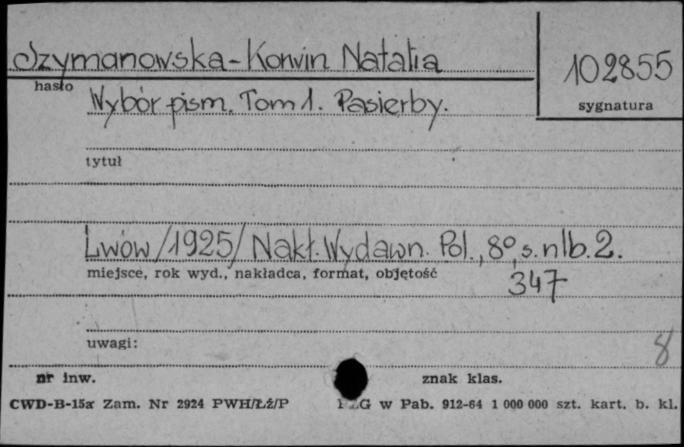 Szymanowska-Korwin Natalia
102855
hasło
sygnatura
Wybór pism. Tom 1. Pasierby.
tytuł
Lwów /1925/ Nakł. Wydawn. Pol., 8°, s. nlb. 2.
miejsce, rok wyd., nakładca, format, objętość
347
uwagi:
8
nr inw.
znak klas.
CWD-B-15a Zam. Nr 2924 PWH/Łż/P
G w Pab. 912-64 1 000 000 szt. kart. b. kl.